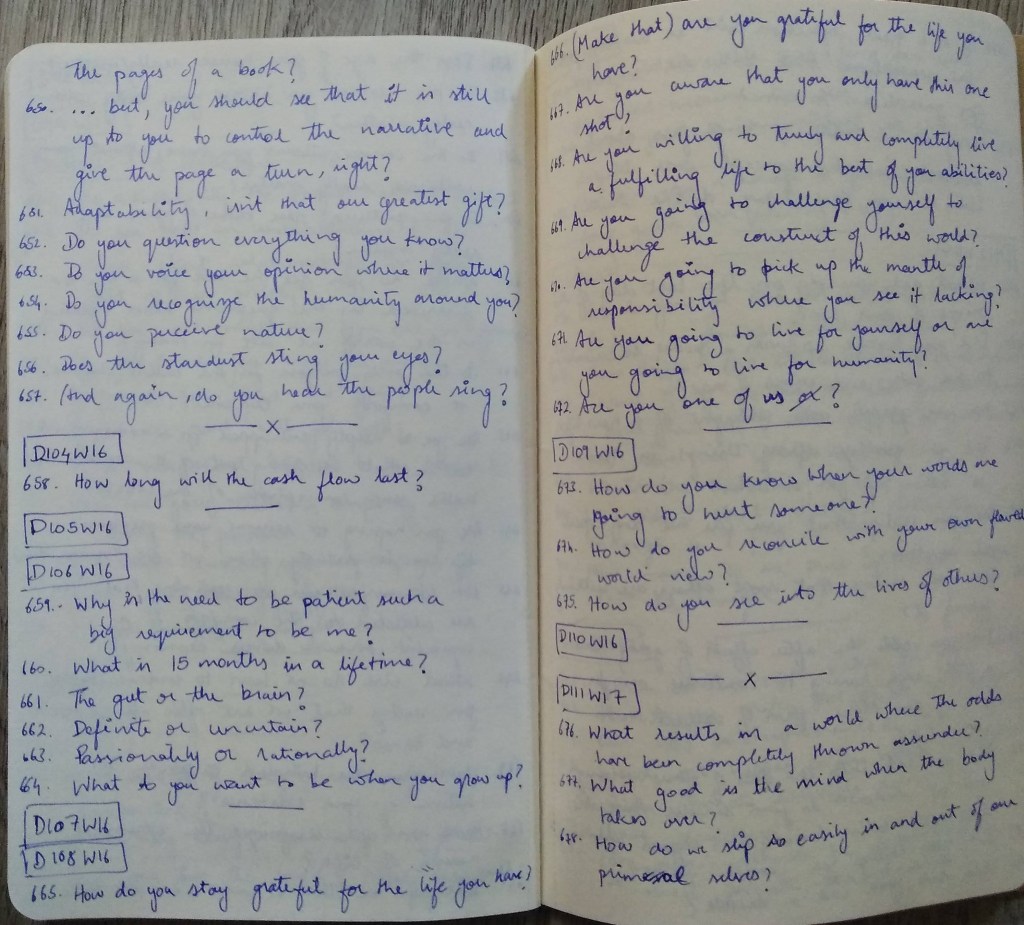 the pages of a book?
650. ... but, you should see that it is still
up to you to control the narrative and
give the page a turn, right?
651. Adaptability, isn't that our greatest gift?
652. Do you question everything you know?
653. Do you voice your opinion where it matters?
654. Do you recognize the humanity around you?
655. Do you perceive nature?
656. Does the stardust sting your eyes?
657. (And again, do you hear the people sing?
x
D104W16
658. How long will the cash flow last?
D105W16
D106W16
659. Why is the need to be patient such a
big requirement to be me?
660. What is 15 months in a lifetime?
661. The gut or the brain?
662. Definite or uncertain?
663. Passionately or rationally?
664. What do you want to be when you grow up?
D107W16
D108W16
665. How do you stay grateful for the life you have?
666. (Make that) are you grateful for the life you
have?
667. Are you aware that you only have this one
shot?
668. Are you willing to truly and completely live
a fulfilling life to the best of your abilities?
669. Are you going to challenge yourself to
challenge the construct of this world?
670. Are you going to pick up the mantle of
responsibility where you see it lacking?
671. Are you going to live for yourself or are
you going to live for humanity?
672. Are you one of us ?
D109W16
673. How do you know when your words are
going to hurt someone?
674. How do you reconcile with your own flawed
world view?
675. How do you see into the lives of others?
D110W16
x
D111W17
676. What results in a world where the odds
have been completely thrown assunder?
677. What good is the mind when the body
takes over?
678. How do we slip so easily in and out of our
selves?